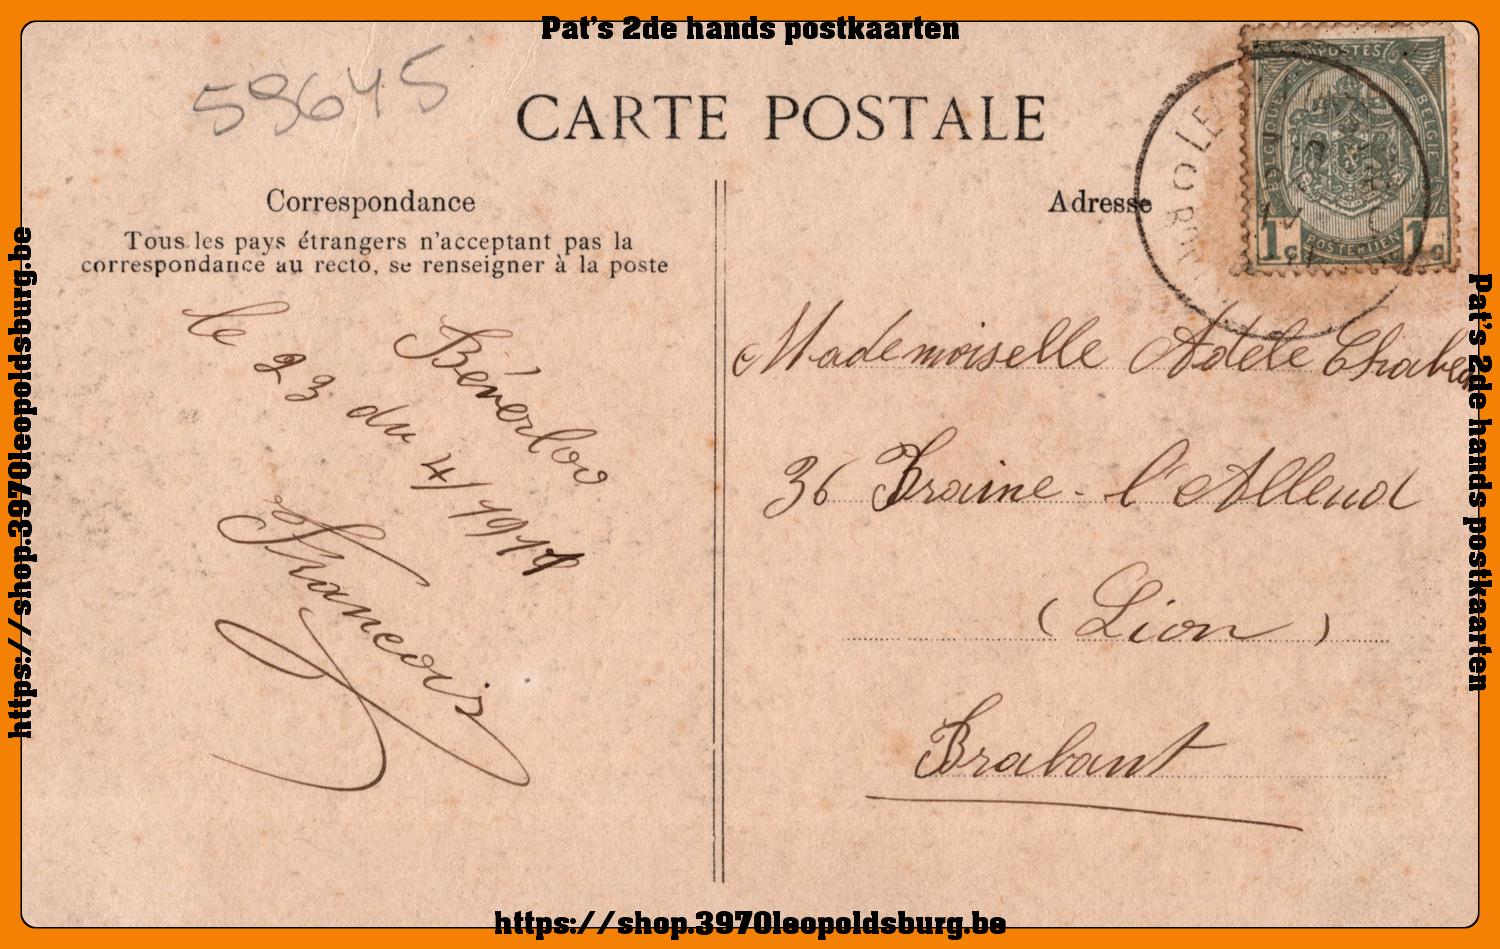 Pat's 2de hands postkaarten
59645
CARTE POSTALE
POSTES
BELGIQUE BELGIE
POSTERIJEN
1c 1c
Correspondance
Tous les pays étrangers n'acceptant pas la
correspondance au recto, se renseigner à la poste
Béverloo
le 23 du 4/1911
Francois
Adresse
Mademoiselle Adele
36 Braine-l'Alleud
(Lion)
Brabant
https://shop.3970leopoldsburg.be
Pat's 2de hands postkaarten
https://shop.3970leopoldsburg.be